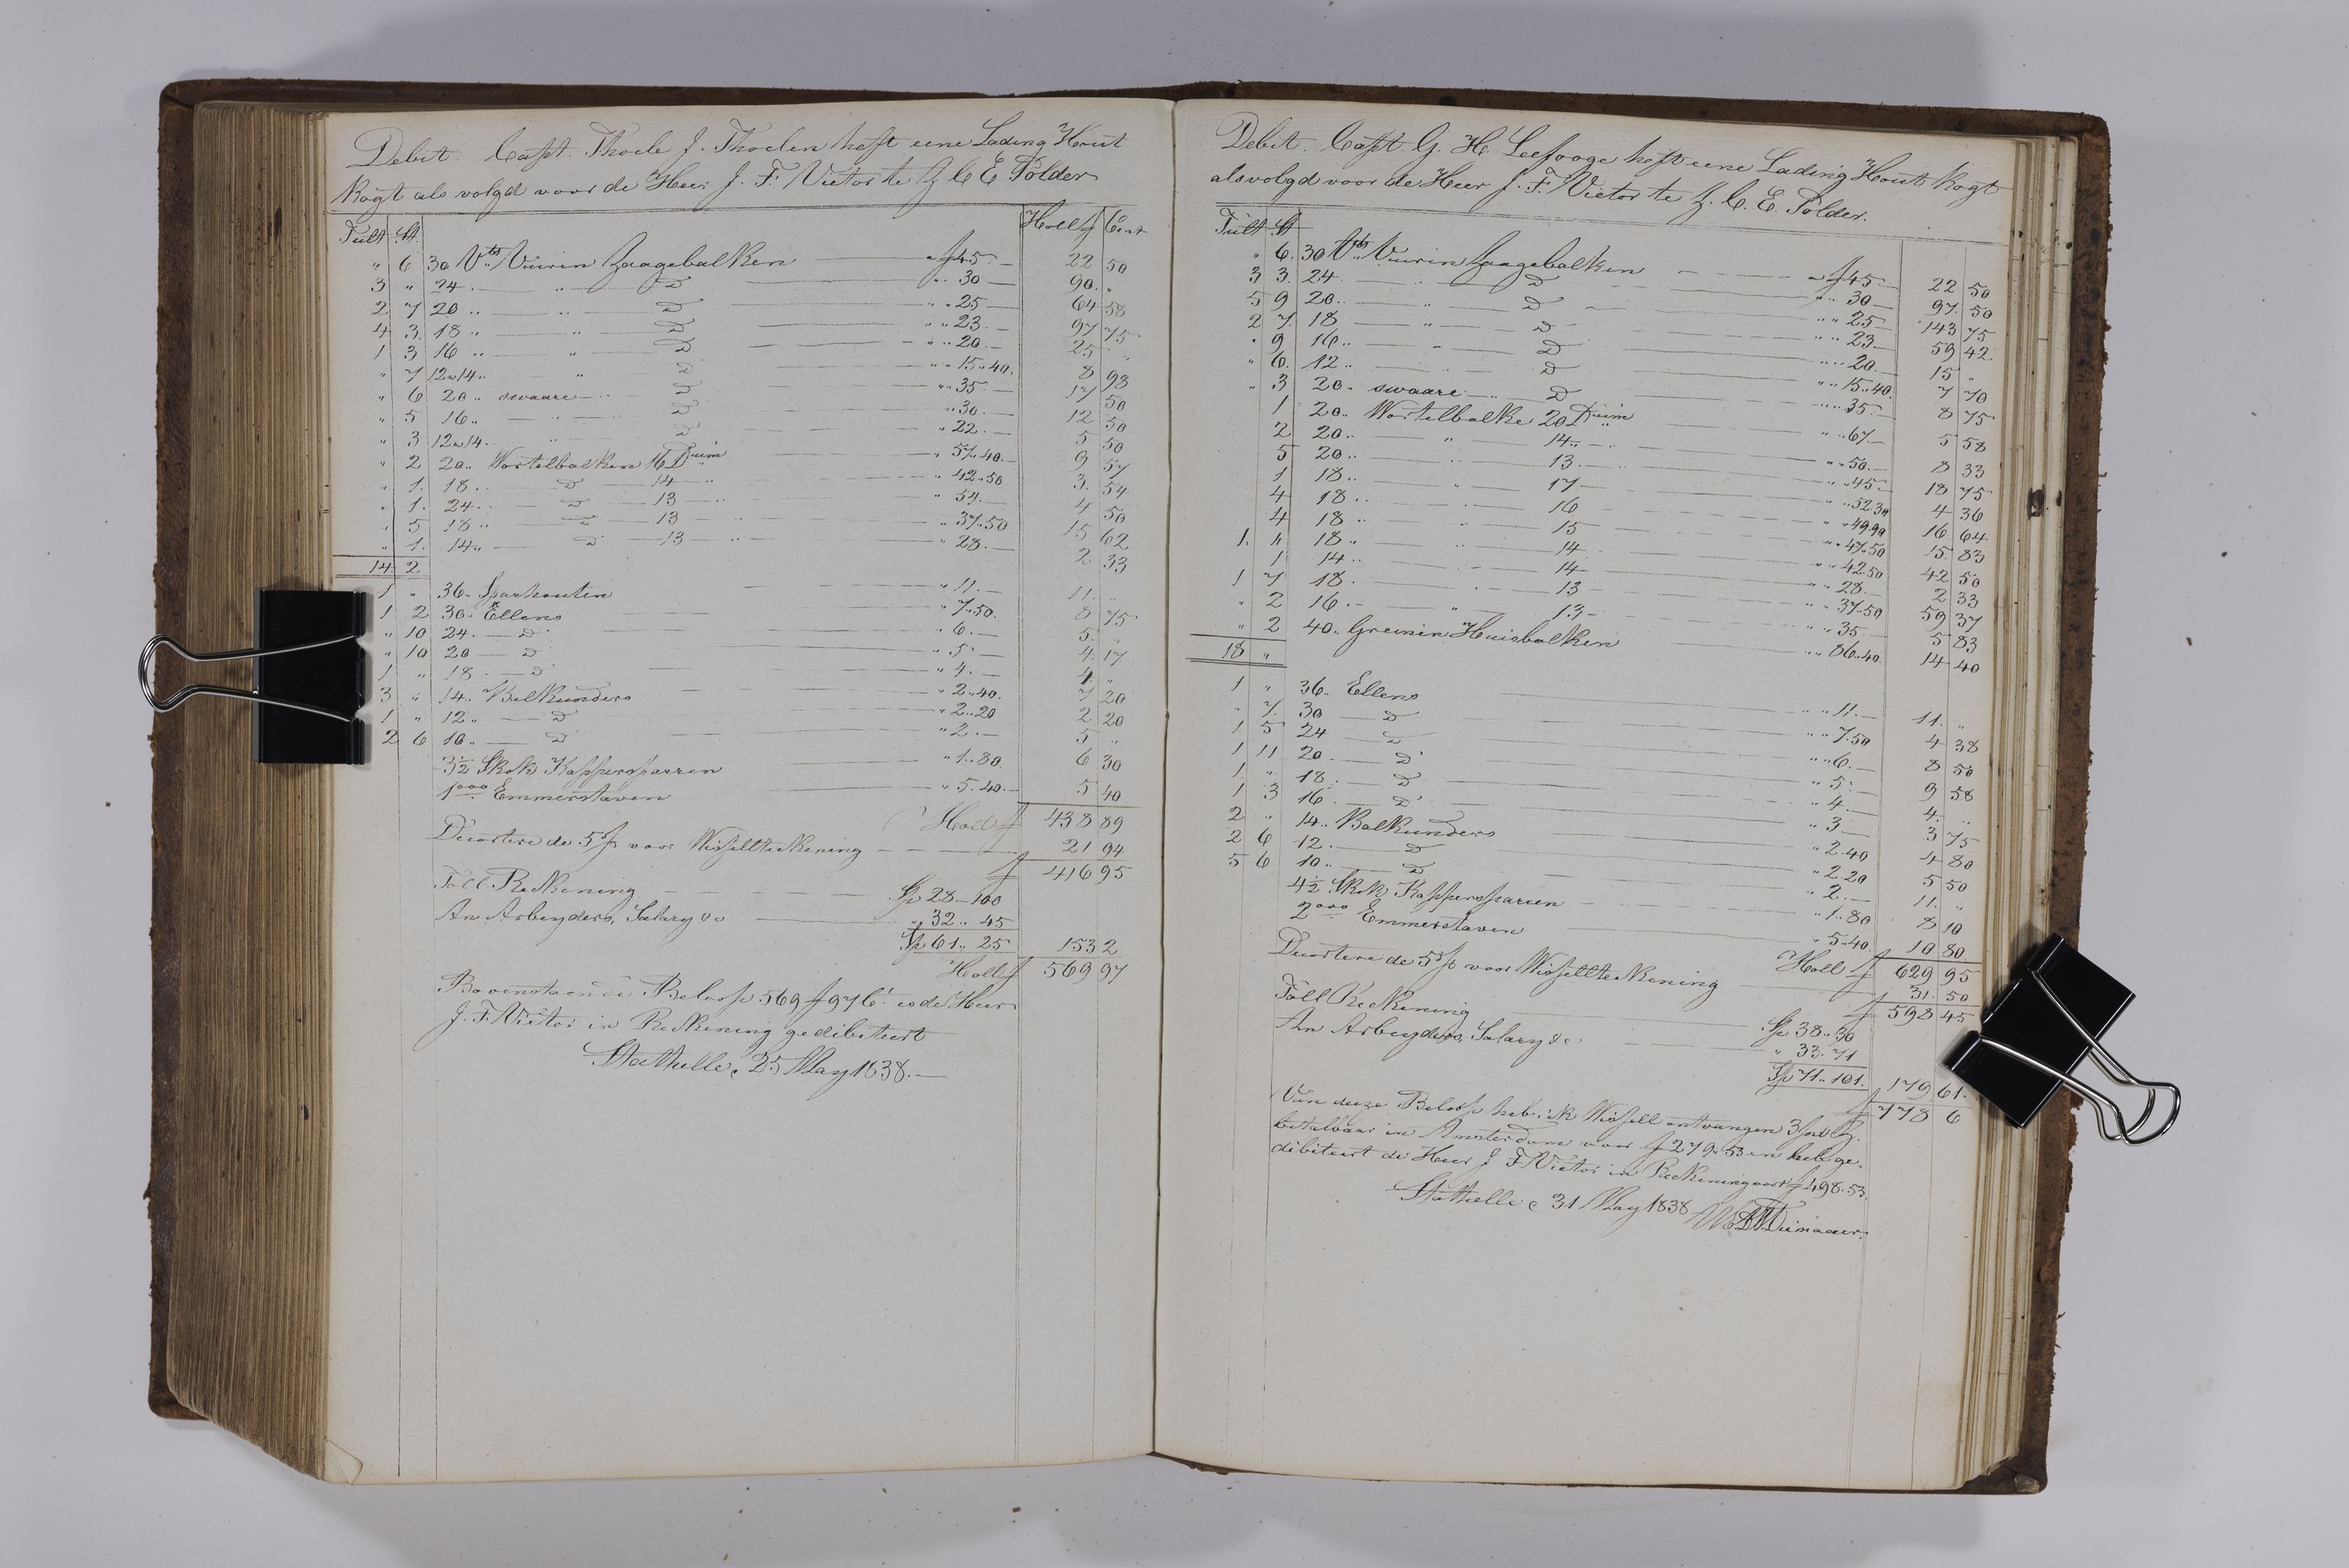 Debit. Capt. Thole J. Tholen heft eene Lading Hout
Kogt als volgd voor de Heer J. F. Vietor te Z C E Polder
Tult St Holl f Cent
" 6 30 Vts Vuiren Zaagebalken — " f 45 — 22 50
3 " 24 " — D — " 30 — 90 "
2 7 20 " — D — " " 25 — 64 58
4 3 18 " " D — " " 23 — 97 75
1 3 16 " " D — " " 20 — 25 "
" 7 12 a 14 " " D " " 15 " 40 8 98
" 6 20 " swaare — D " " 35 — 17 50
" 5 16 " — D " 30 — 12 50
" 3 12 a 14 " — D " 22 — 5 50
" 2 20 " Wortelbalken 16 Duim " 57 " 40 — 9 57
" 1 18 " D 14 " " 42 " 50 3 54
" 1 24 " D 13 " " 54 — 4 50
" 5 18 " D 13 " " 37 " 50 15 62
" 1 14 " — D 13 " " 28 — 2 33
14 2
1 " 36 " Sparhouten " 11 — 11 "
1 2 30 " Ellens " 7 " 50 8 75
" 10 24 — D " 6 — 5 "
" 10 20 — D " 5 — 4 17
1 " 18 — D " 4 — 4 "
3 " 14 " Balkunders " 2 " 40 7 20
1 " 12 " — D " 2 " 20 2 20
2 6 10 " — D " 2 — 5 "
3½ Skok Kappersparren " 1 " 80 6 30
1000 Emmerstaven " 5 " 40 — 5 40
Holl f 438 89
Decortere de 5 pf voor Wissellteekening — 21 94
f 416 95
Toll Rekening — Sp 28 — 100
An Arbeyders, Salary &c — " 32 " 45
Sp 61 " 25 153 2
Holl f 569 97
Bovenstaende Beloop 569 f 97 C is de Heer
J. F. Vietor in Rekening gedibiteert
Stathelle 25 May 1838 —
Debit. Capt. G. H. Leefooge heft eene Lading Hout kogt
als volgd voor de Heer J. F. Vietor te Z. C. E. Polder.
Tult St
" 6 30 Vts Vuiren Zaagebalken — " f 45 — 22 50
3 3 24 " D — " " 30 — 97 50
5 9 20 " " D — " " 25 — 143 75
2 7 18 — " D — " " 23 — 59 42
" 9 16 " " D — " " 20 — 15 "
" 6 12 " D " " 15 " 40 7 70
" 3 20 " swaare — D " " 35 — 8 75
1 20 " Wortelbalke 20 Duim " " 67 — 5 58
2 20 " " 14 " " " 50 — 8 33
5 20 " " 13 — " " 45 — 18 75
1 18 " " 17 — " " 52 30 4 36
4 18 " " 16 " " 49 90 16 64
4 18 " " 15 " " 47 " 50 15 83
1 " 18 " " 14 " " 42 " 50 42 50
1 14 " 14 " " 28 — 2 33
1 7 18 " 13 " " 37 " 50 59 37
" 2 16 " " 13 — " " 35 — 5 83
" 2 40 " Greinin Huisbalken " " 86 " 40 14 40
18 "
1 " 36 " Ellens " " 11 — 11 "
" 7 30 — D " " 7 " 50 4 38
1 5 24 — D " " 6 — 8 50
1 11 20 — D " 5 — 9 58
1 " 18 — D " 4 — 4 "
1 3 16 — D " 3 — 3 75
2 " 14 " Balkunders " 2 " 40 4 80
2 6 12 — D " 2 20 5 50
5 6 10 " — D " 2 — 11 "
4½ Skok Kappersparren — " 1 " 80 8 10
2000 Emmerstaven " 5 " 40 10 80
Holl f 629 95
Decortere de 5 pf voor Wissellteekening 31 50
f 598 45
Toll Rekening — Sp 38 " 30
An Arbeyders, Salary &c — " 33 " 71
Sp 71 " 101 179 61
f 778 6
Van deeze Beloop heb ik Wissell ontvangen
betalbaar in Amsterdam voor f 279 " 53 en heb ge-
dibiteert de Heer J F Vietor in Rekening voor f 498 " 53
Stathelle 31 May 1838